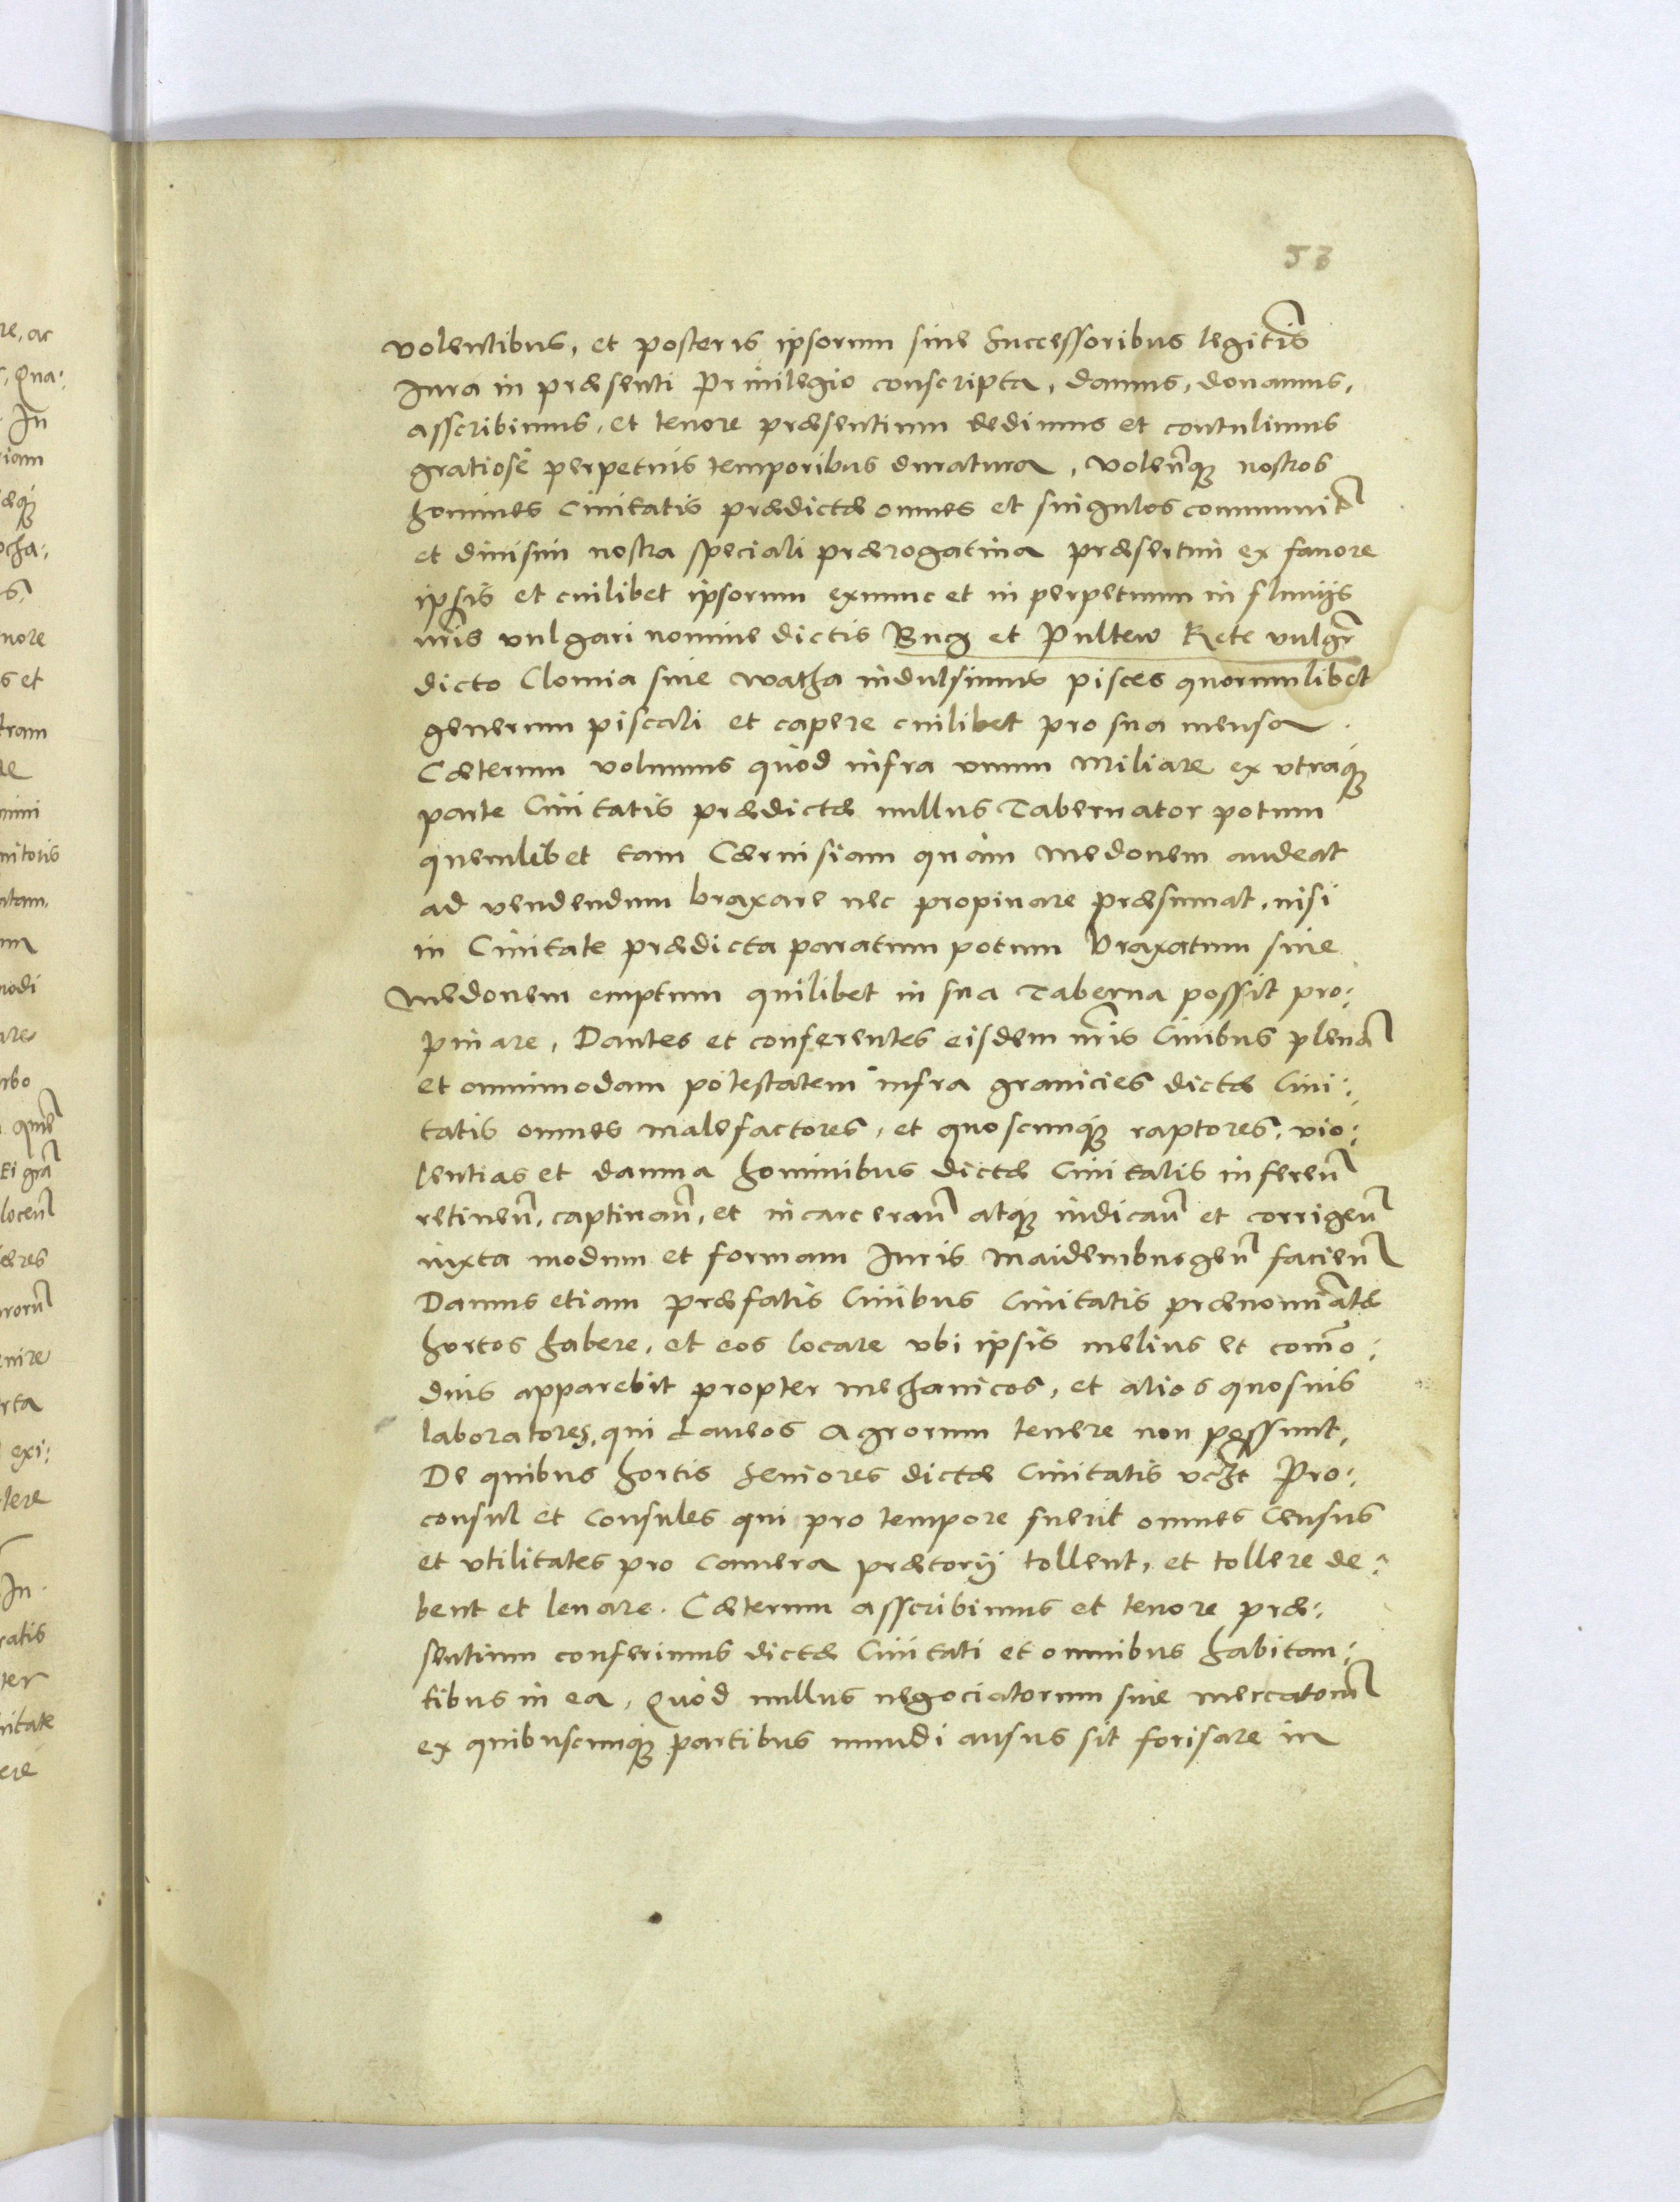 53
volentibus, et posteris ipsorum siue Successoribus legitĩs
Iura in præsenti Priuilegio conscripta, damus, donamus,
asscribimus, et tenore præsentium dedimus et contulimus
gratiosè perpetuis temporibus duratura, volen̄tq̃ nostros
homines Ciuitatis prædictæ omnes et singulos communit̃
et diuisim nostra speciali prærogatiua præsertim ex fauore
ipsis et cuilibet ipsorum exnunc et in perpetuum in fluuijs
nr̃is vulgari nomine dictis Bug et Pultew Rete vulgr̃
dicto Clomia siue watha indulsimus pisces quorumlibet
generum piscali et capere cuilibet pro sua mensa.
Cæterum volumus quòd infra vnum Miliare ex vtraq̃
parte Ciuitatis prædictæ nullus Tabernator potum
quemlibet tam Cæruisiam quàm Medonem audeat
ad vendendum braxare nec propinare præsumat, nisi
in Ciuitate prædicta paratum potum braxatum siue
Medonem emptum quilibet in sua Taberna possit pro:
pinare, Dantes et conferentes eisdem nr̃is Ciuibus plenã
et omnimodam potestatem infra granicies dictæ Ciui:
tatis omnes malefactores, et quoscunq̃ raptores, vio:
lentias et damna hominibus dictæ Ciuitatis inferen̄
retinen̄, captiuan̄, et incarceran̄ atq̃ iudican̄ et corrigen̄
iuxta modum et formam Iuris Maidemburgen̄ facien̄
Damus etiam præfatis Ciuibus Ciuitatis prænominatæ
hortos habere, et eos locare vbi ipsis melius et com̄o:
dius apparebit propter mechanicos, et alios quosuis
laboratores, qui Laneos Agrorum tenere non possunt,
De quibus hortis Seniores dictæ Ciuitatis vczt Pro:
consul et Consules qui pro tempore fuerit omnes Census
et vtilitates pro Camera prætorij tollent, et tollere de:
bent et leuare. Cæterum asscribimus et tenore præ:
sentium conferimus dictæ Ciuitati et omnibus habitan:
tibus in ea, Quòd nullus negociatorum siue mercatom̃
ex quibuscunq̃ partibus mundi ausus sit forisare in